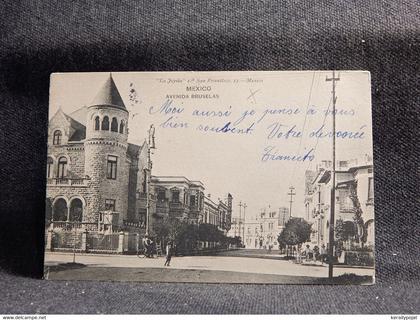 "La Joyita" 1ª San Francisco, 13.—Mexico
MEXICO
AVENIDA BRUSELAS
Moi aussi je pense à vous
bien souvent. Votre dévouée
Tránsito
www.delcampe.net
kerailypojat